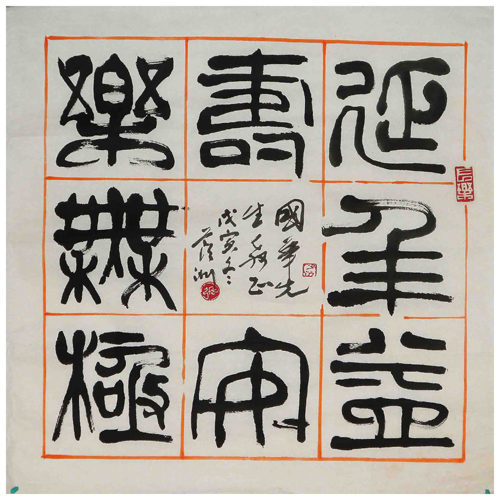 延年益
壽安
樂無極
國華先
生教正
戊寅冬
洲